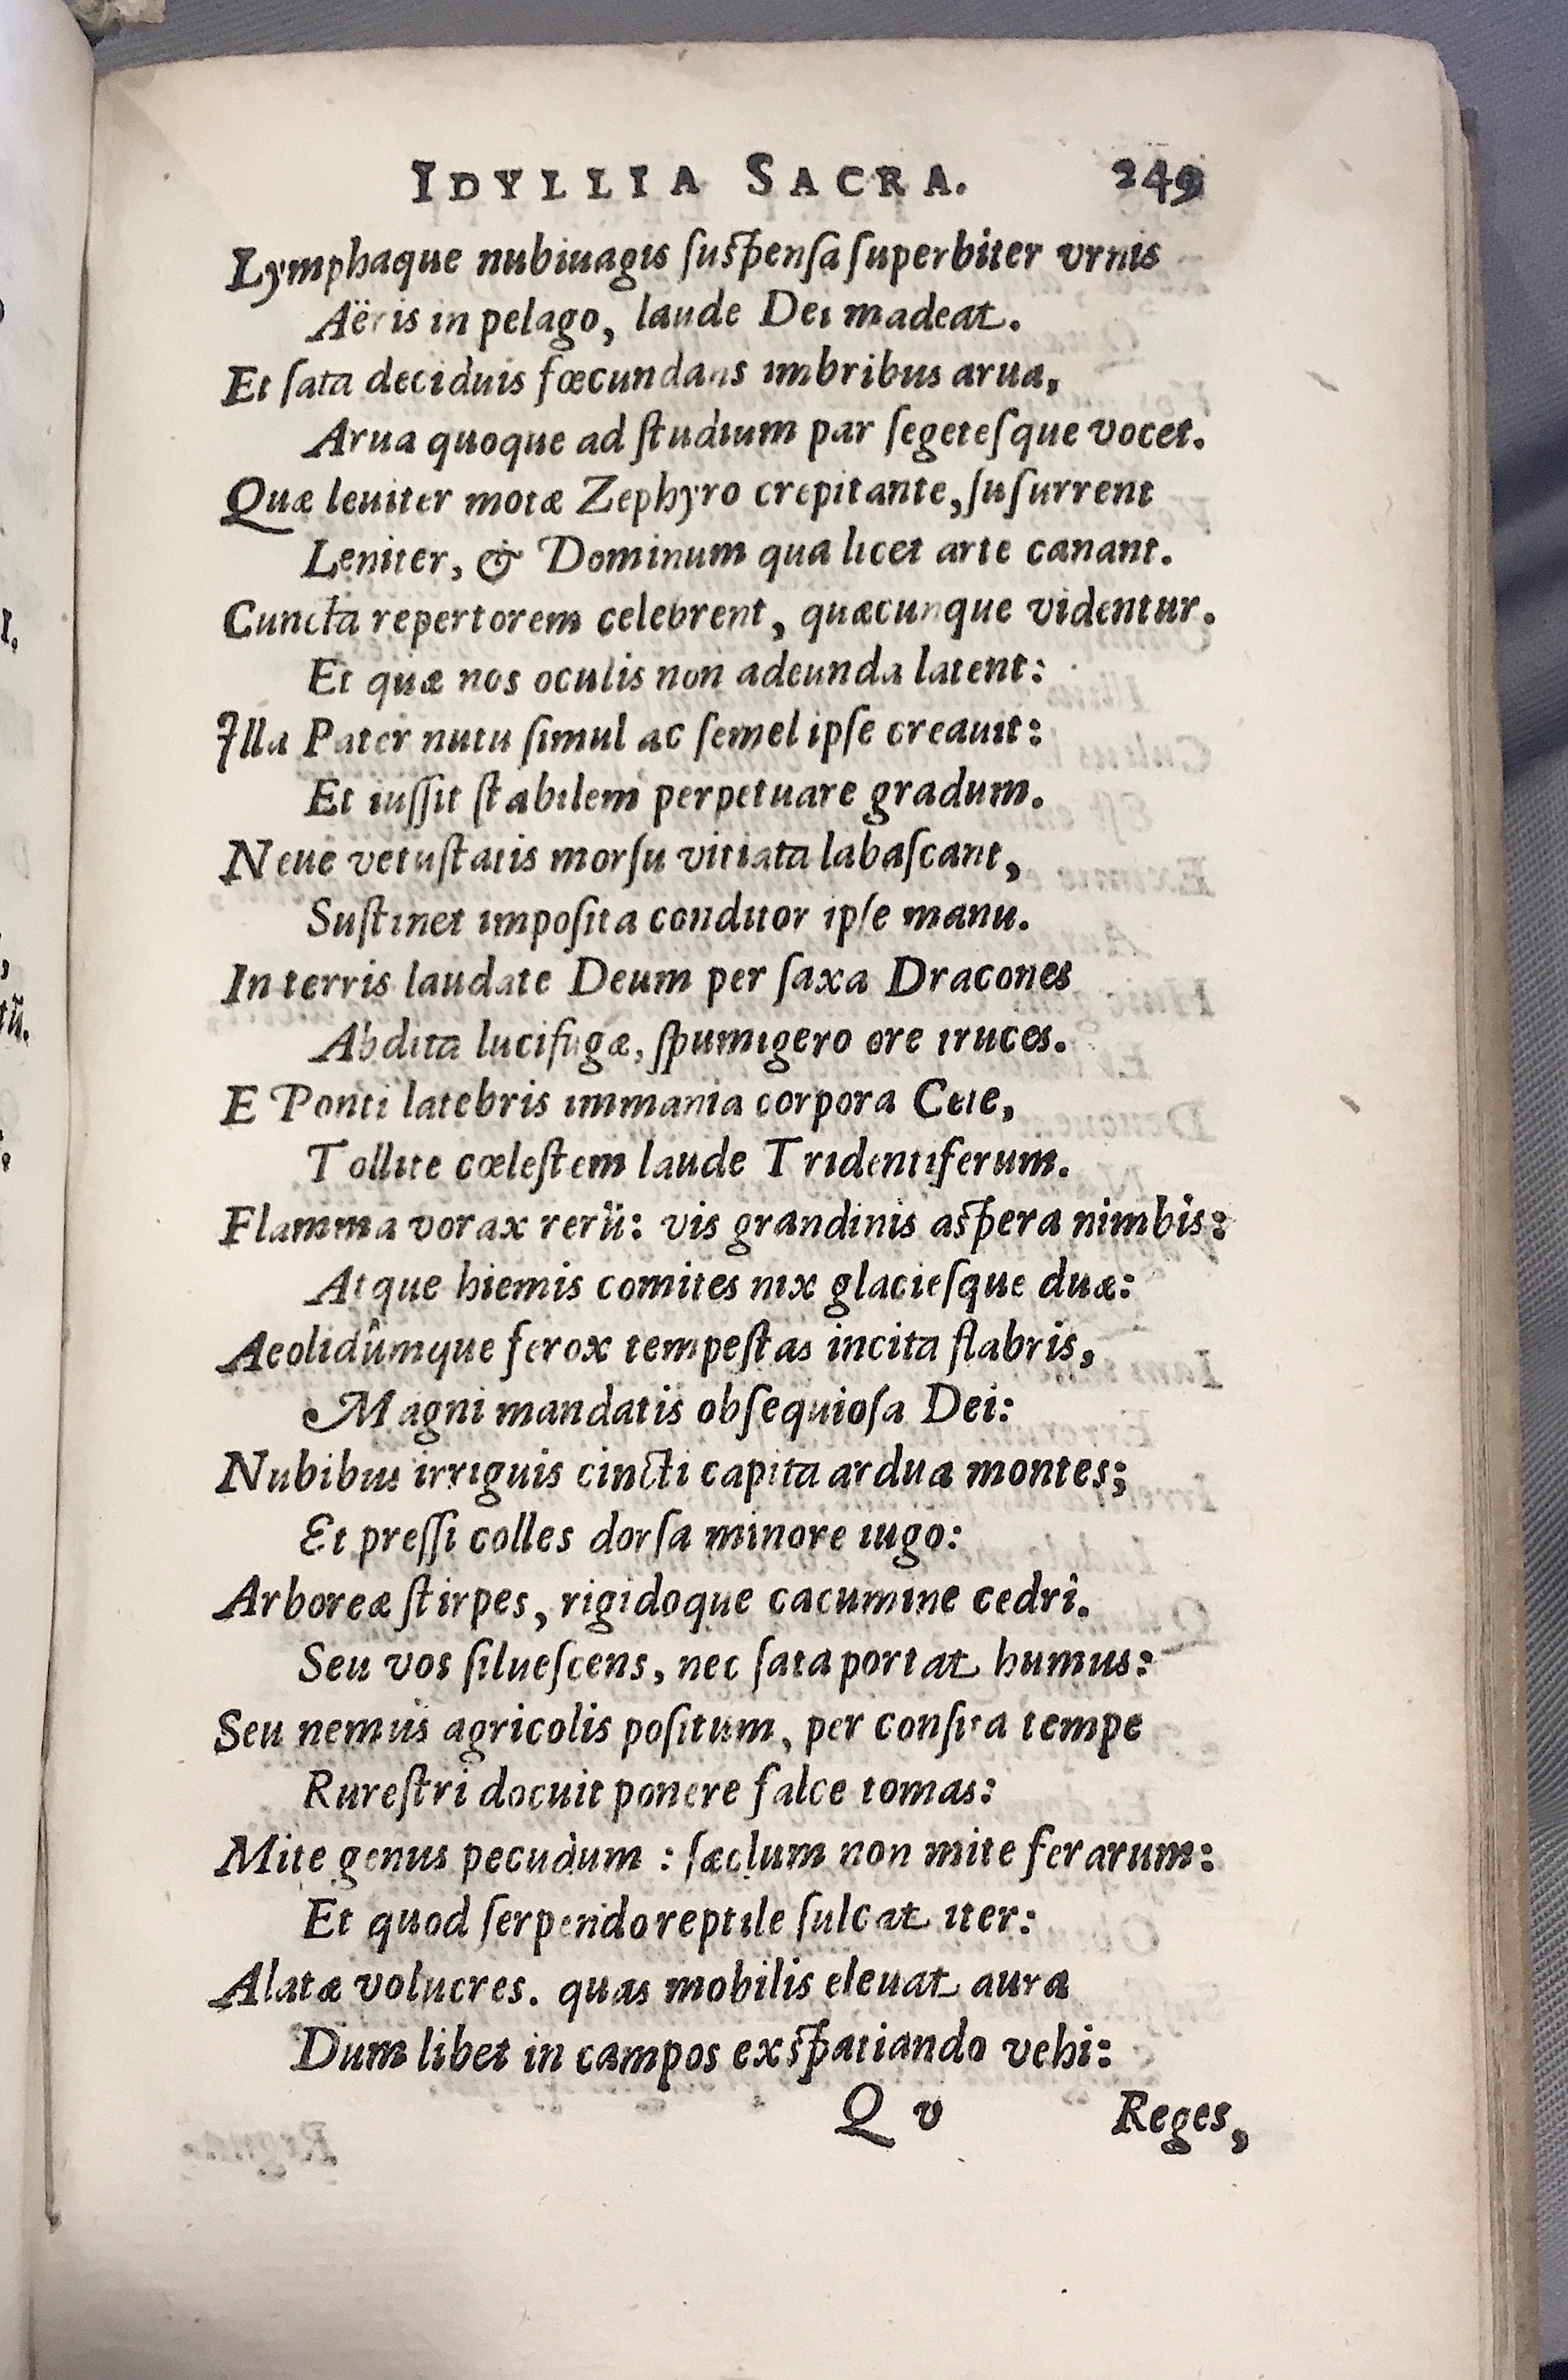 IDYLLIA SACRA. 249
Lymphaque nubiuagis ſuſpenſa ſuperbiter vrnis
Aëris in pelago, laude Dei madeat.
Et ſata deciduis fœcundans imbribus arua,
Arua quoque ad ſtudium par ſegeteſque vocet.
Quæ leuiter motæ Zephyro crepitante, ſuſurrent
Leniter, & Dominum qua licet arte canant.
Cuncta repertorem celebrent, quæcunque videntur.
Et quæ nos oculis non adeunda latent:
Illa Pater nutu ſimul ac ſemel ipſe creauit:
Et iuſſit ſtabilem perpetuare gradum.
Neue vetuſtatis morſu vitiata labaſcant,
Suſtinet impoſita conditor ipſe manu.
In terris laudate Deum per ſaxa Dracones
Abdita lucifugæ, ſpumigero ore truces.
E Ponti latebris immania corpora Cete,
Tollite cœleſtem laude Tridentiferum.
Flamma vorax rerū: vis grandinis aſpera nimbis:
Atque hiemis comites nix glacieſque duæ:
Aeolidûmque ferox tempeſtas incita flabris,
Magni mandatis obſequioſa Dei:
Nubibus irriguis cincti capita ardua montes;
Et preſſi colles dorſa minore iugo:
Arboreæ ſtirpes, rigidoque cacumine cedri.
Seu vos ſilueſcens, nec ſata portat humus:
Seu nemus agricolis poſitum, per conſita tempe
Rureſtri docuit ponere falce comas:
Mite genus pecudum : ſæclum non mite ferarum:
Et quod ſerpendo reptile ſulcat iter:
Alatæ volucres. quas mobilis eleuat aura
Dum libet in campos exſpatiando vehi:
Q v Reges,